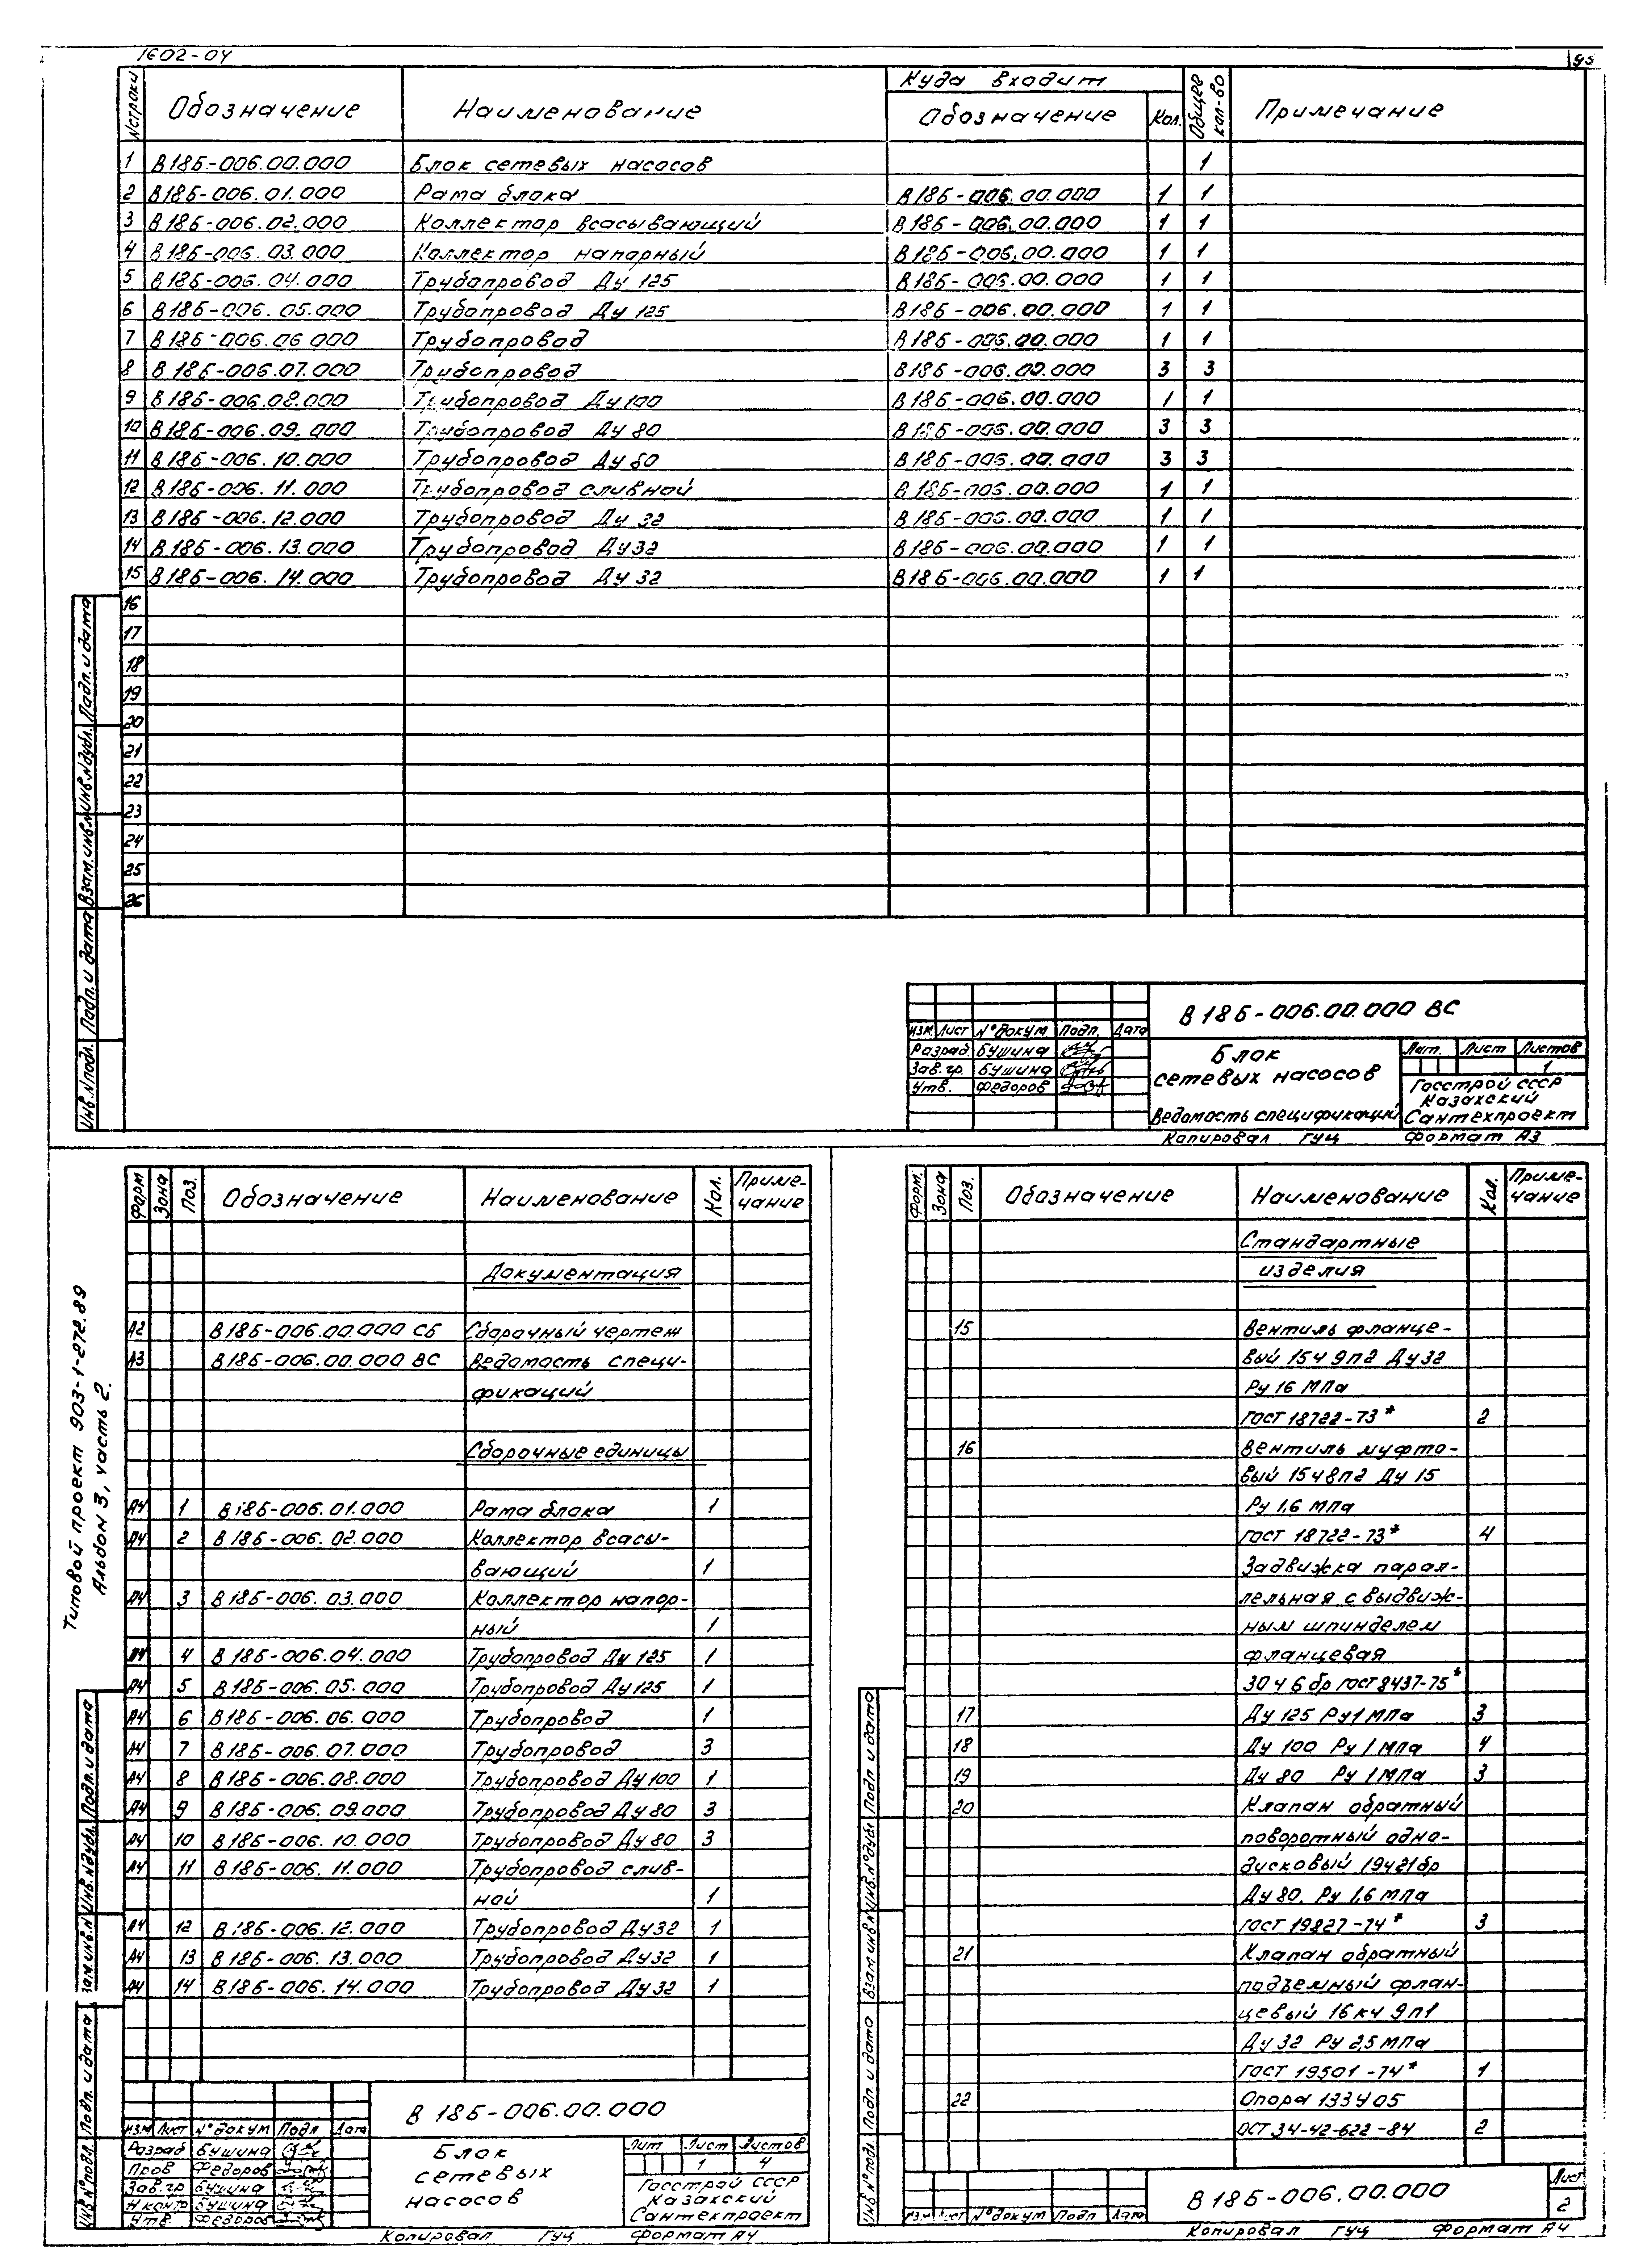 1602-04
95
№ строки Обозначение Наименование Куда входит Общее кол-во Примечание
Обозначение Кол.
1 В18Б-006.00.000 Блок сетевых насосов 1
2 В18Б-006.01.000 Рама блока В18Б-006.00.000 1 1
3 В18Б-006.02.000 Коллектор всасывающий В18Б-006.00.000 1 1
4 В18Б-006.03.000 Коллектор напорный В18Б-006.00.000 1 1
5 В18Б-006.04.000 Трубопровод Ду 125 В18Б-006.00.000 1 1
6 В18Б-006.05.000 Трубопровод Ду 125 В18Б-006.00.000 1 1
7 В18Б-006.06.000 Трубопровод В18Б-006.00.000 1 1
8 В18Б-006.07.000 Трубопровод В18Б-006.00.000 3 3
9 В18Б-006.08.000 Трубопровод Ду 100 В18Б-006.00.000 1 1
10 В18Б-006.09.000 Трубопровод Ду 80 В18Б-006.00.000 3 3
11 В18Б-006.10.000 Трубопровод Ду 80 В18Б-006.00.000 3 3
12 В18Б-006.11.000 Трубопровод сливной В18Б-006.00.000 1 1
13 В18Б-006.12.000 Трубопровод Ду 32 В18Б-006.00.000 1 1
14 В18Б-006.13.000 Трубопровод Ду 32 В18Б-006.00.000 1 1
15 В18Б-006.14.000 Трубопровод Ду 32 В18Б-006.00.000 1 1
16
17
18
19
20
21
22
23
24
25
26
Инв.№подл. Подп. и дата Взам.инв.№ Инв.№дубл. Подп. и дата
В18Б-006.00.000 ВС
Изм. Лист №докум. Подп. Дата
Разраб. Бушина
Зав.гр. Бушина
Утв. Федоров
Блок
сетевых насосов
Ведомость спецификаций
Лит. Лист Листов
1
Госстрой СССР
Казахский
Сантехпроект
Копировал ГУЦ Формат А3
Типовой проект 903-1-272.89
Альбом 3, часть 2.
Форм. Зона Поз. Обозначение Наименование Кол. Приме-
чание
Документация
А2 В18Б-006.00.000 СБ Сборочный чертеж
А3 В18Б-006.00.000 ВС Ведомость специ-
фикаций
Сборочные единицы
А4 1 В18Б-006.01.000 Рама блока 1
А4 2 В18Б-006.02.000 Коллектор всасы-
вающий 1
А4 3 В18Б-006.03.000 Коллектор напор-
ный 1
А4 4 В18Б-006.04.000 Трубопровод Ду 125 1
А4 5 В18Б-006.05.000 Трубопровод Ду 125 1
А4 6 В18Б-006.06.000 Трубопровод 1
А4 7 В18Б-006.07.000 Трубопровод 3
А4 8 В18Б-006.08.000 Трубопровод Ду 100 1
А4 9 В18Б-006.09.000 Трубопровод Ду 80 3
А4 10 В18Б-006.10.000 Трубопровод Ду 80 3
А4 11 В18Б-006.11.000 Трубопровод слив-
ной 1
А4 12 В18Б-006.12.000 Трубопровод Ду 32 1
А4 13 В18Б-006.13.000 Трубопровод Ду 32 1
А4 14 В18Б-006.14.000 Трубопровод Ду 32 1
Инв.№подл. Подп. и дата Взам.инв.№ Инв.№дубл. Подп. и дата
В18Б-006.00.000
Изм Лист №докум Подп Дата
Разраб Бушина
Пров Федоров
Зав.гр Бушина
Н контр Бушина
Утв. Федоров
Блок
сетевых
насосов
Лит Лист Листов
1 4
Госстрой СССР
Казахский
Сантехпроект
Копировал ГУЦ Формат А4
Форм. Зона Поз. Обозначение Наименование Кол. Приме-
чание
Стандартные
изделия
15 Вентиль фланце-
вый 15ч 9п2 Ду 32
Ру 16 МПа
ГОСТ 18722-73* 2
16 Вентиль муфто-
вый 15ч8п2 Ду 15
Ру 1.6 МПа
ГОСТ 18722-73* 4
Задвижка парал-
лельная с выдвиж-
ным шпинделем
фланцевая
30ч 6бр ГОСТ 8437-75*
17 Ду 125 Ру 1 МПа 3
18 Ду 100 Ру 1 МПа 4
19 Ду 80 Ру 1 МПа 3
20 Клапан обратный
поворотный одно-
дисковый 19ч21бр
Ду 80, Ру 1,6 МПа
ГОСТ 19827-74* 3
21 Клапан обратный
подъемный флан-
цевый 16кч 9п1
Ду 32 Ру 2,5 МПа
ГОСТ 19501-74* 1
22 Опора 133У05
ОСТ 34-42-622-84 2
Инв №подл. Подп. и дата Взам инв.№ Инв.№дубл Подп и дата
Изм Лист №докум Подп Дата
В18Б-006.00.000
Лист
2
Копировал ГУЦ Формат А4